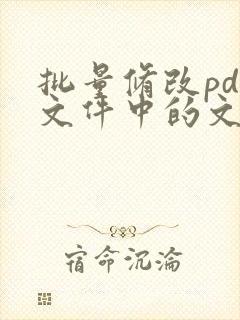 批量修改pd
文件中的文
宿命沉沦